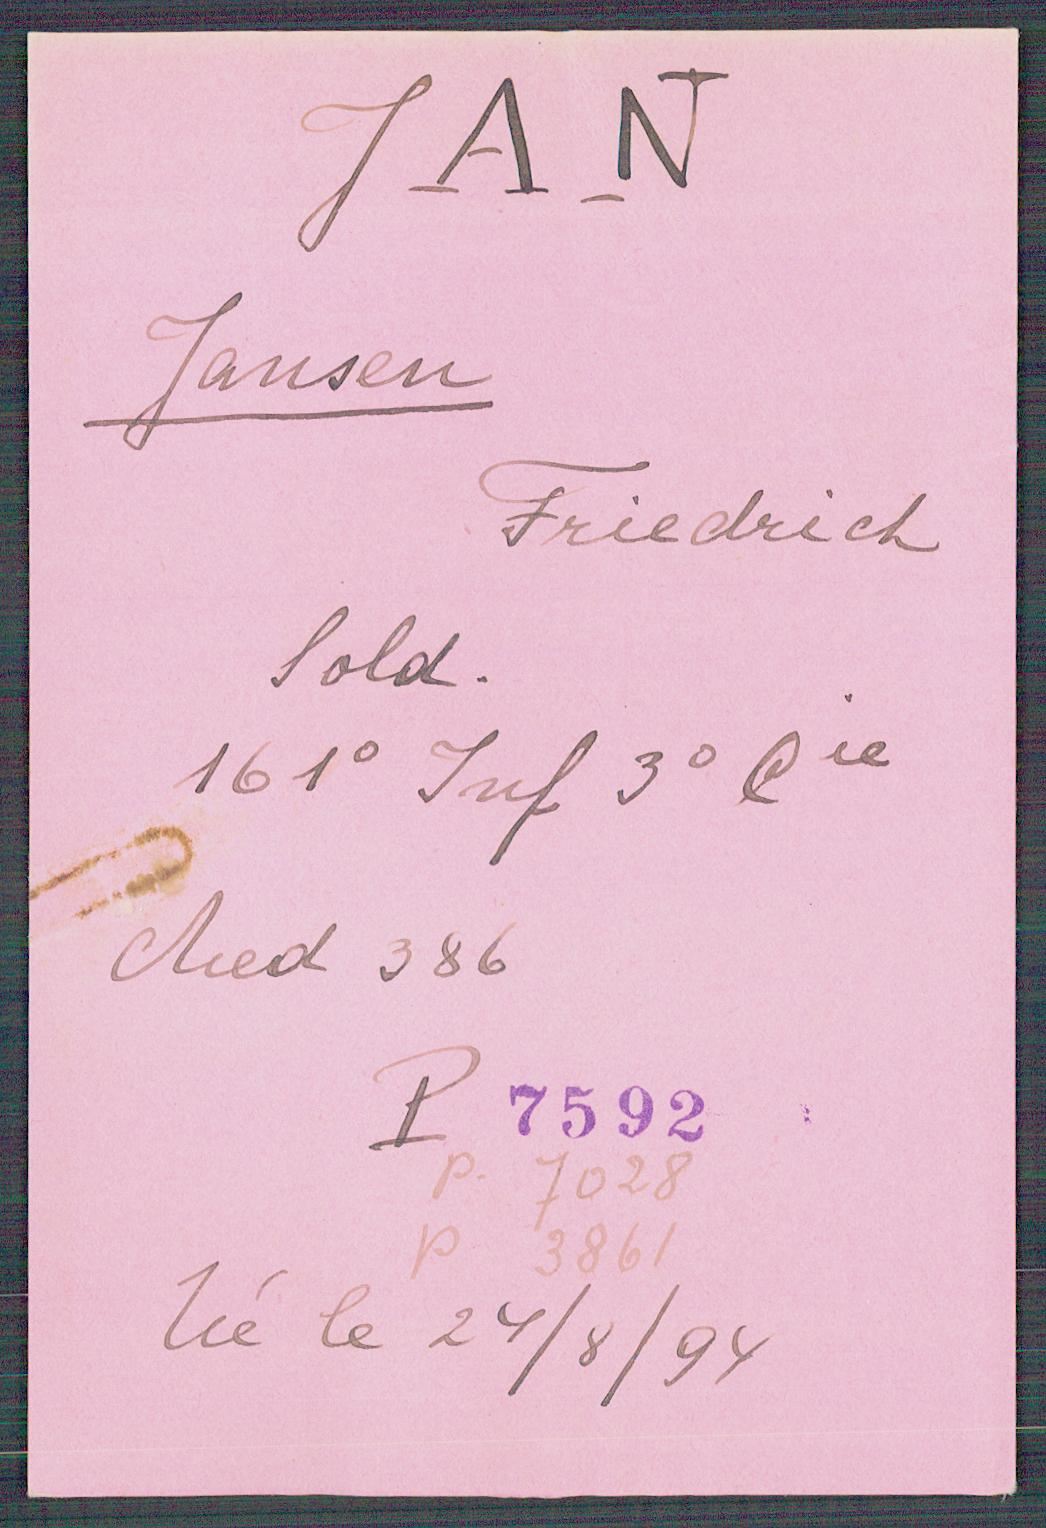 JAN
Jansen
Friedrich
Sold.
161° Inf 3° Cie
Med 386
P 7592
p. 7028
p 3861
Né le 24/8/94